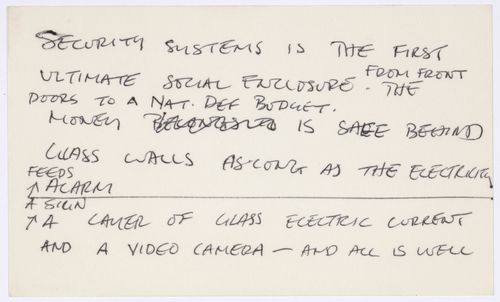 SECURITY SYSTEMS IS THE FIRST
ULTIMATE SOCIAL ENCLOSURE. FROM FRONT
DOORS TO A NAT. DEF BUDGET. THE
MONEY IS SAFE BEHIND
GLASS WALLS AS LONG AS THE ELECTRICITY
FEEDS
↑ ALARM
A SIRIN
↑ A LAYER OF GLASS ELECTRIC CURRENT
AND A VIDEO CAMERA — AND ALL IS WELL